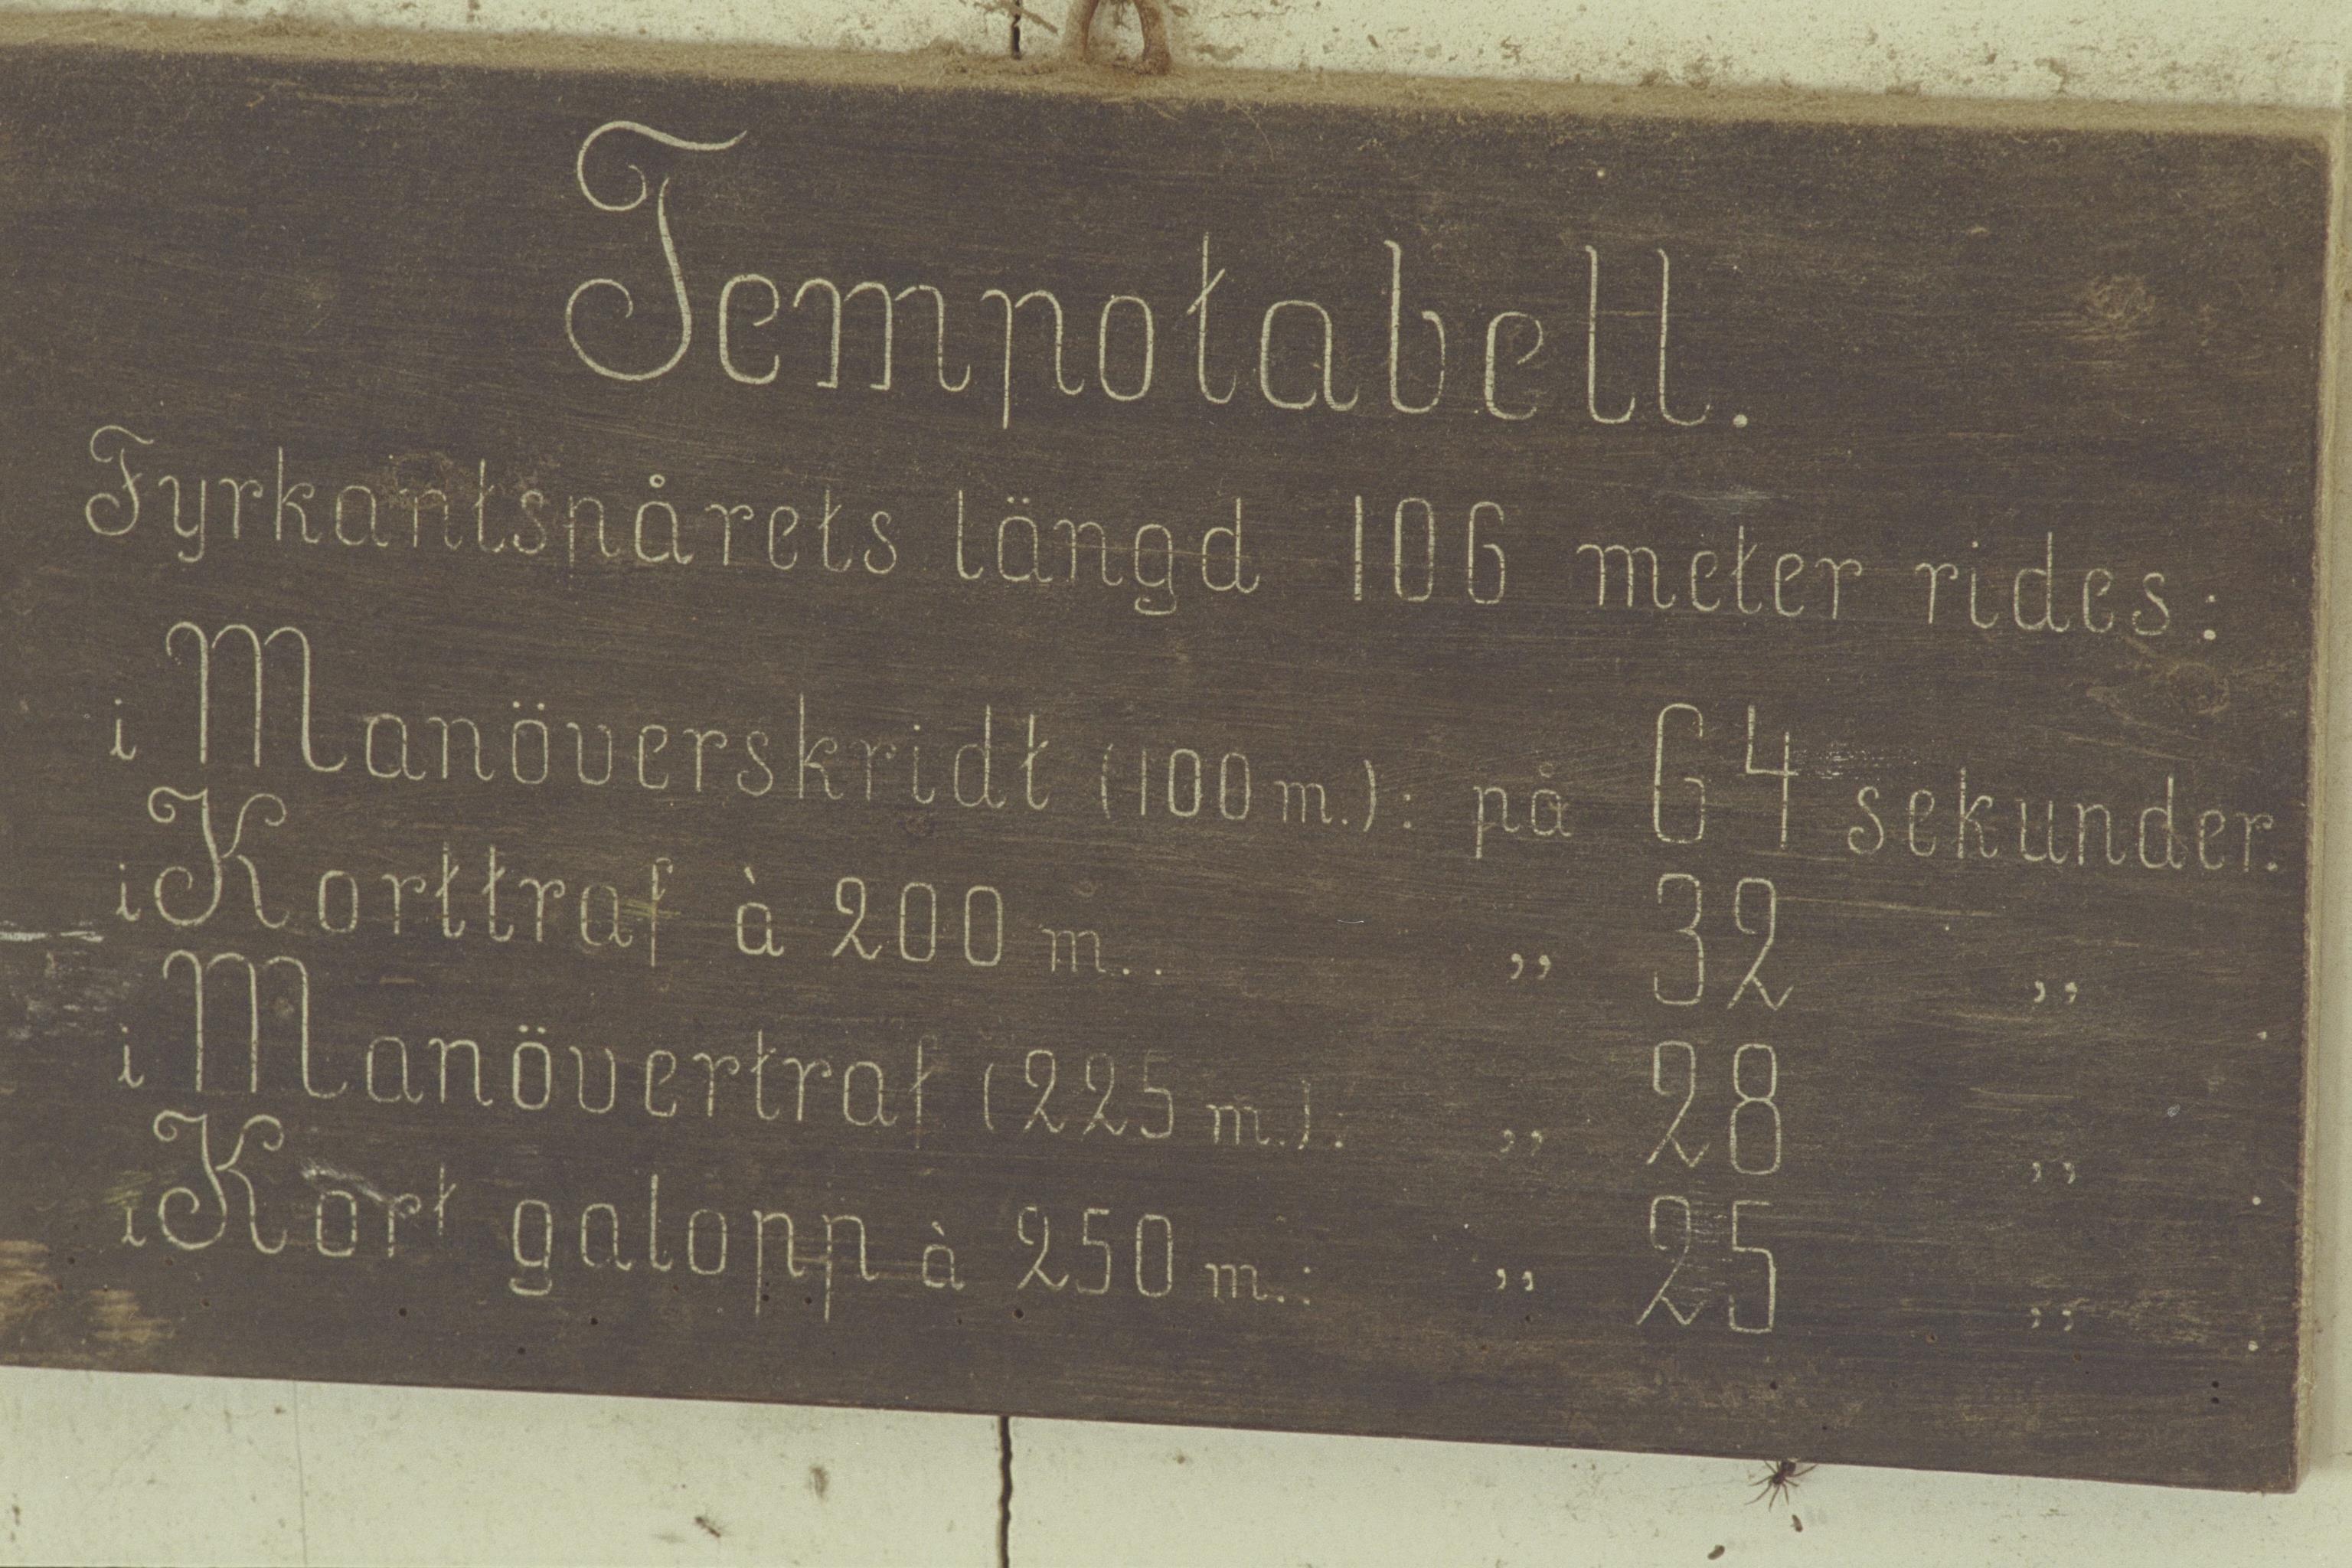 Tempotabell.
Fyrkantspårets längd 106 meter rides:
i Manöverskridt (100 m.): på 64 sekunder.
i Korttraf à 200 m.. ,, 32 ,,
i Manövertraf (225 m.): ,, 28 ,,
i Kort galopp à 250 m.: ,, 25 ,,